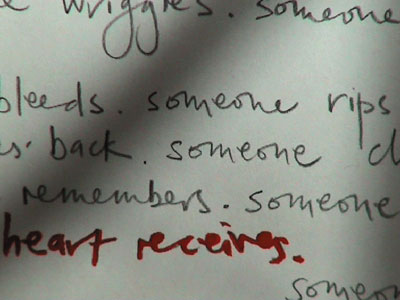 wriggles. someone
bleeds. someone rips
back. someone
remembers. someone
heart receives.
someon